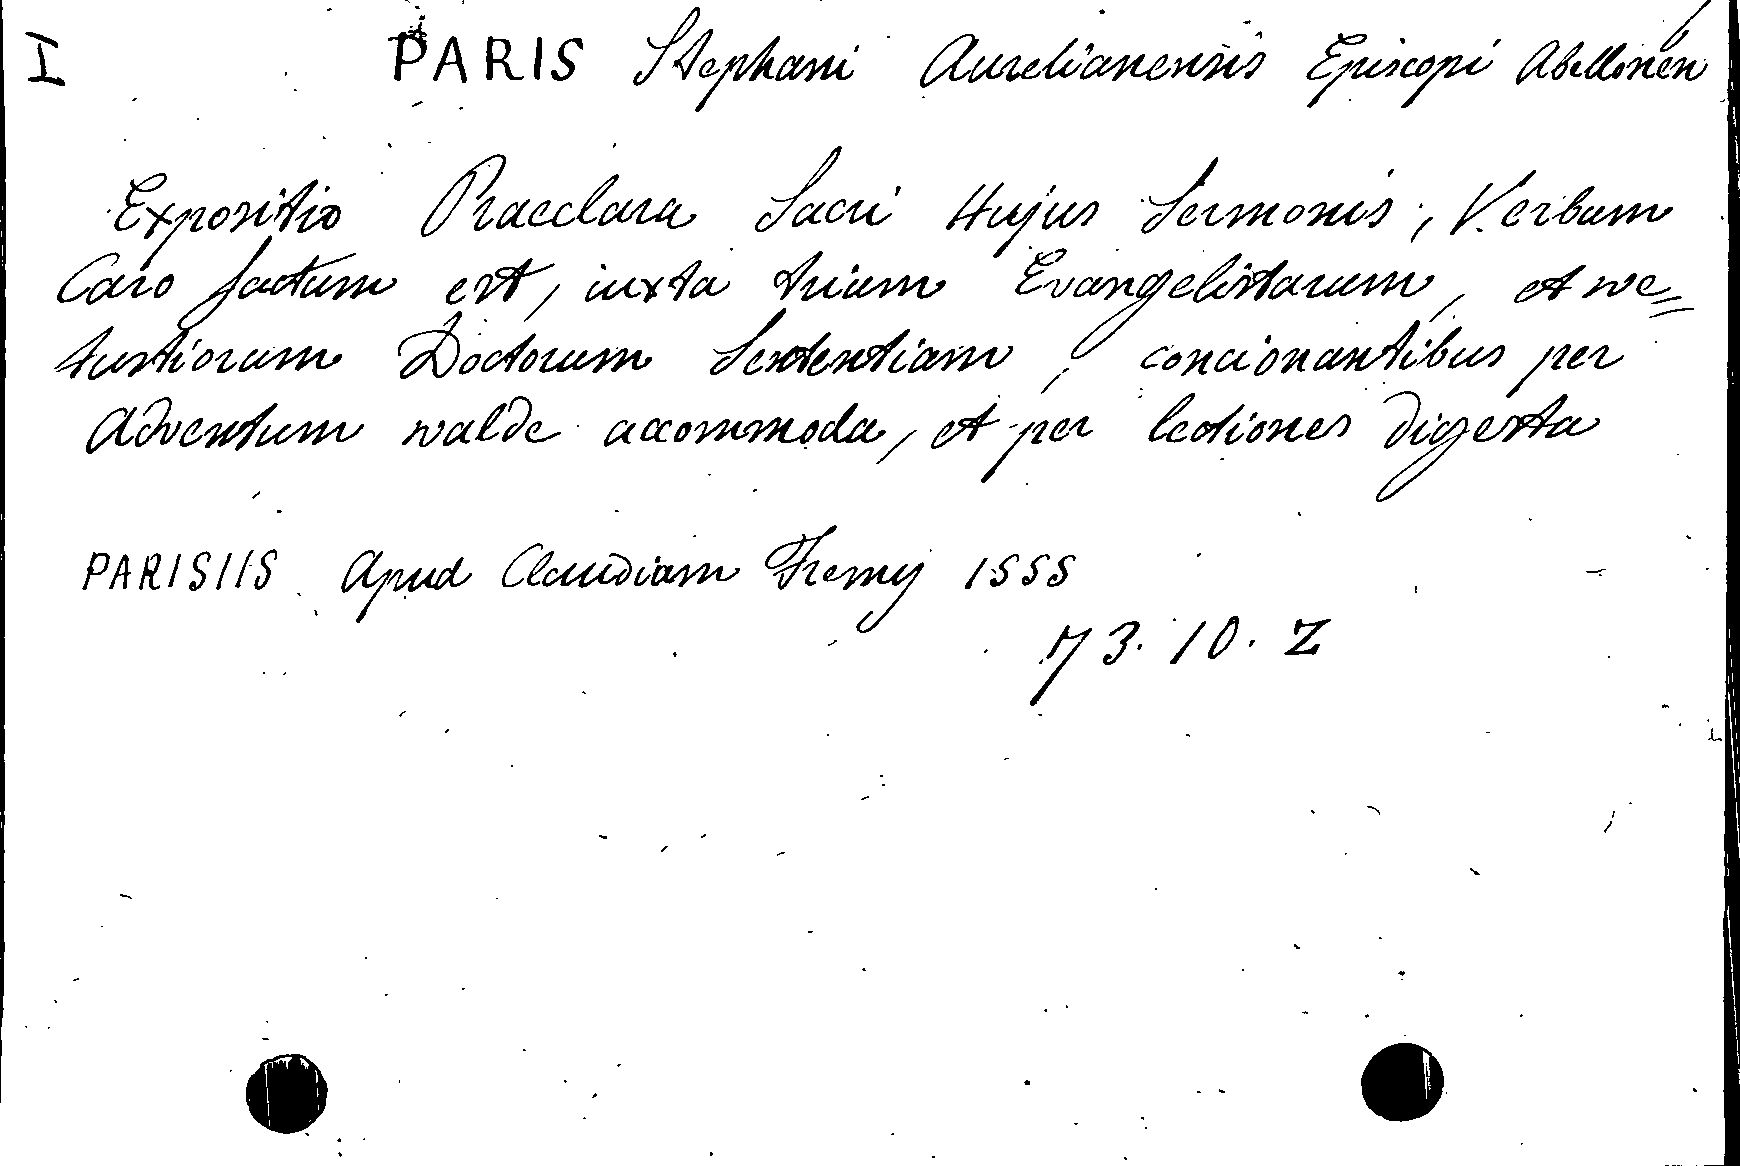 I PARIS Stephani Aurelianensis Episcopi Abellonen
Expositio Praeclara Sacri Hujus Sermonis, Verbum
Caro factum est, iuxta trium Evangelistarum, et ve=
tustiorum Doctorum Sententiam, concionantibus per
Adventum valde accommoda, et per lectiones digesta
PARISIIS Apud Claudiam Fremy 1555
73.10.Z